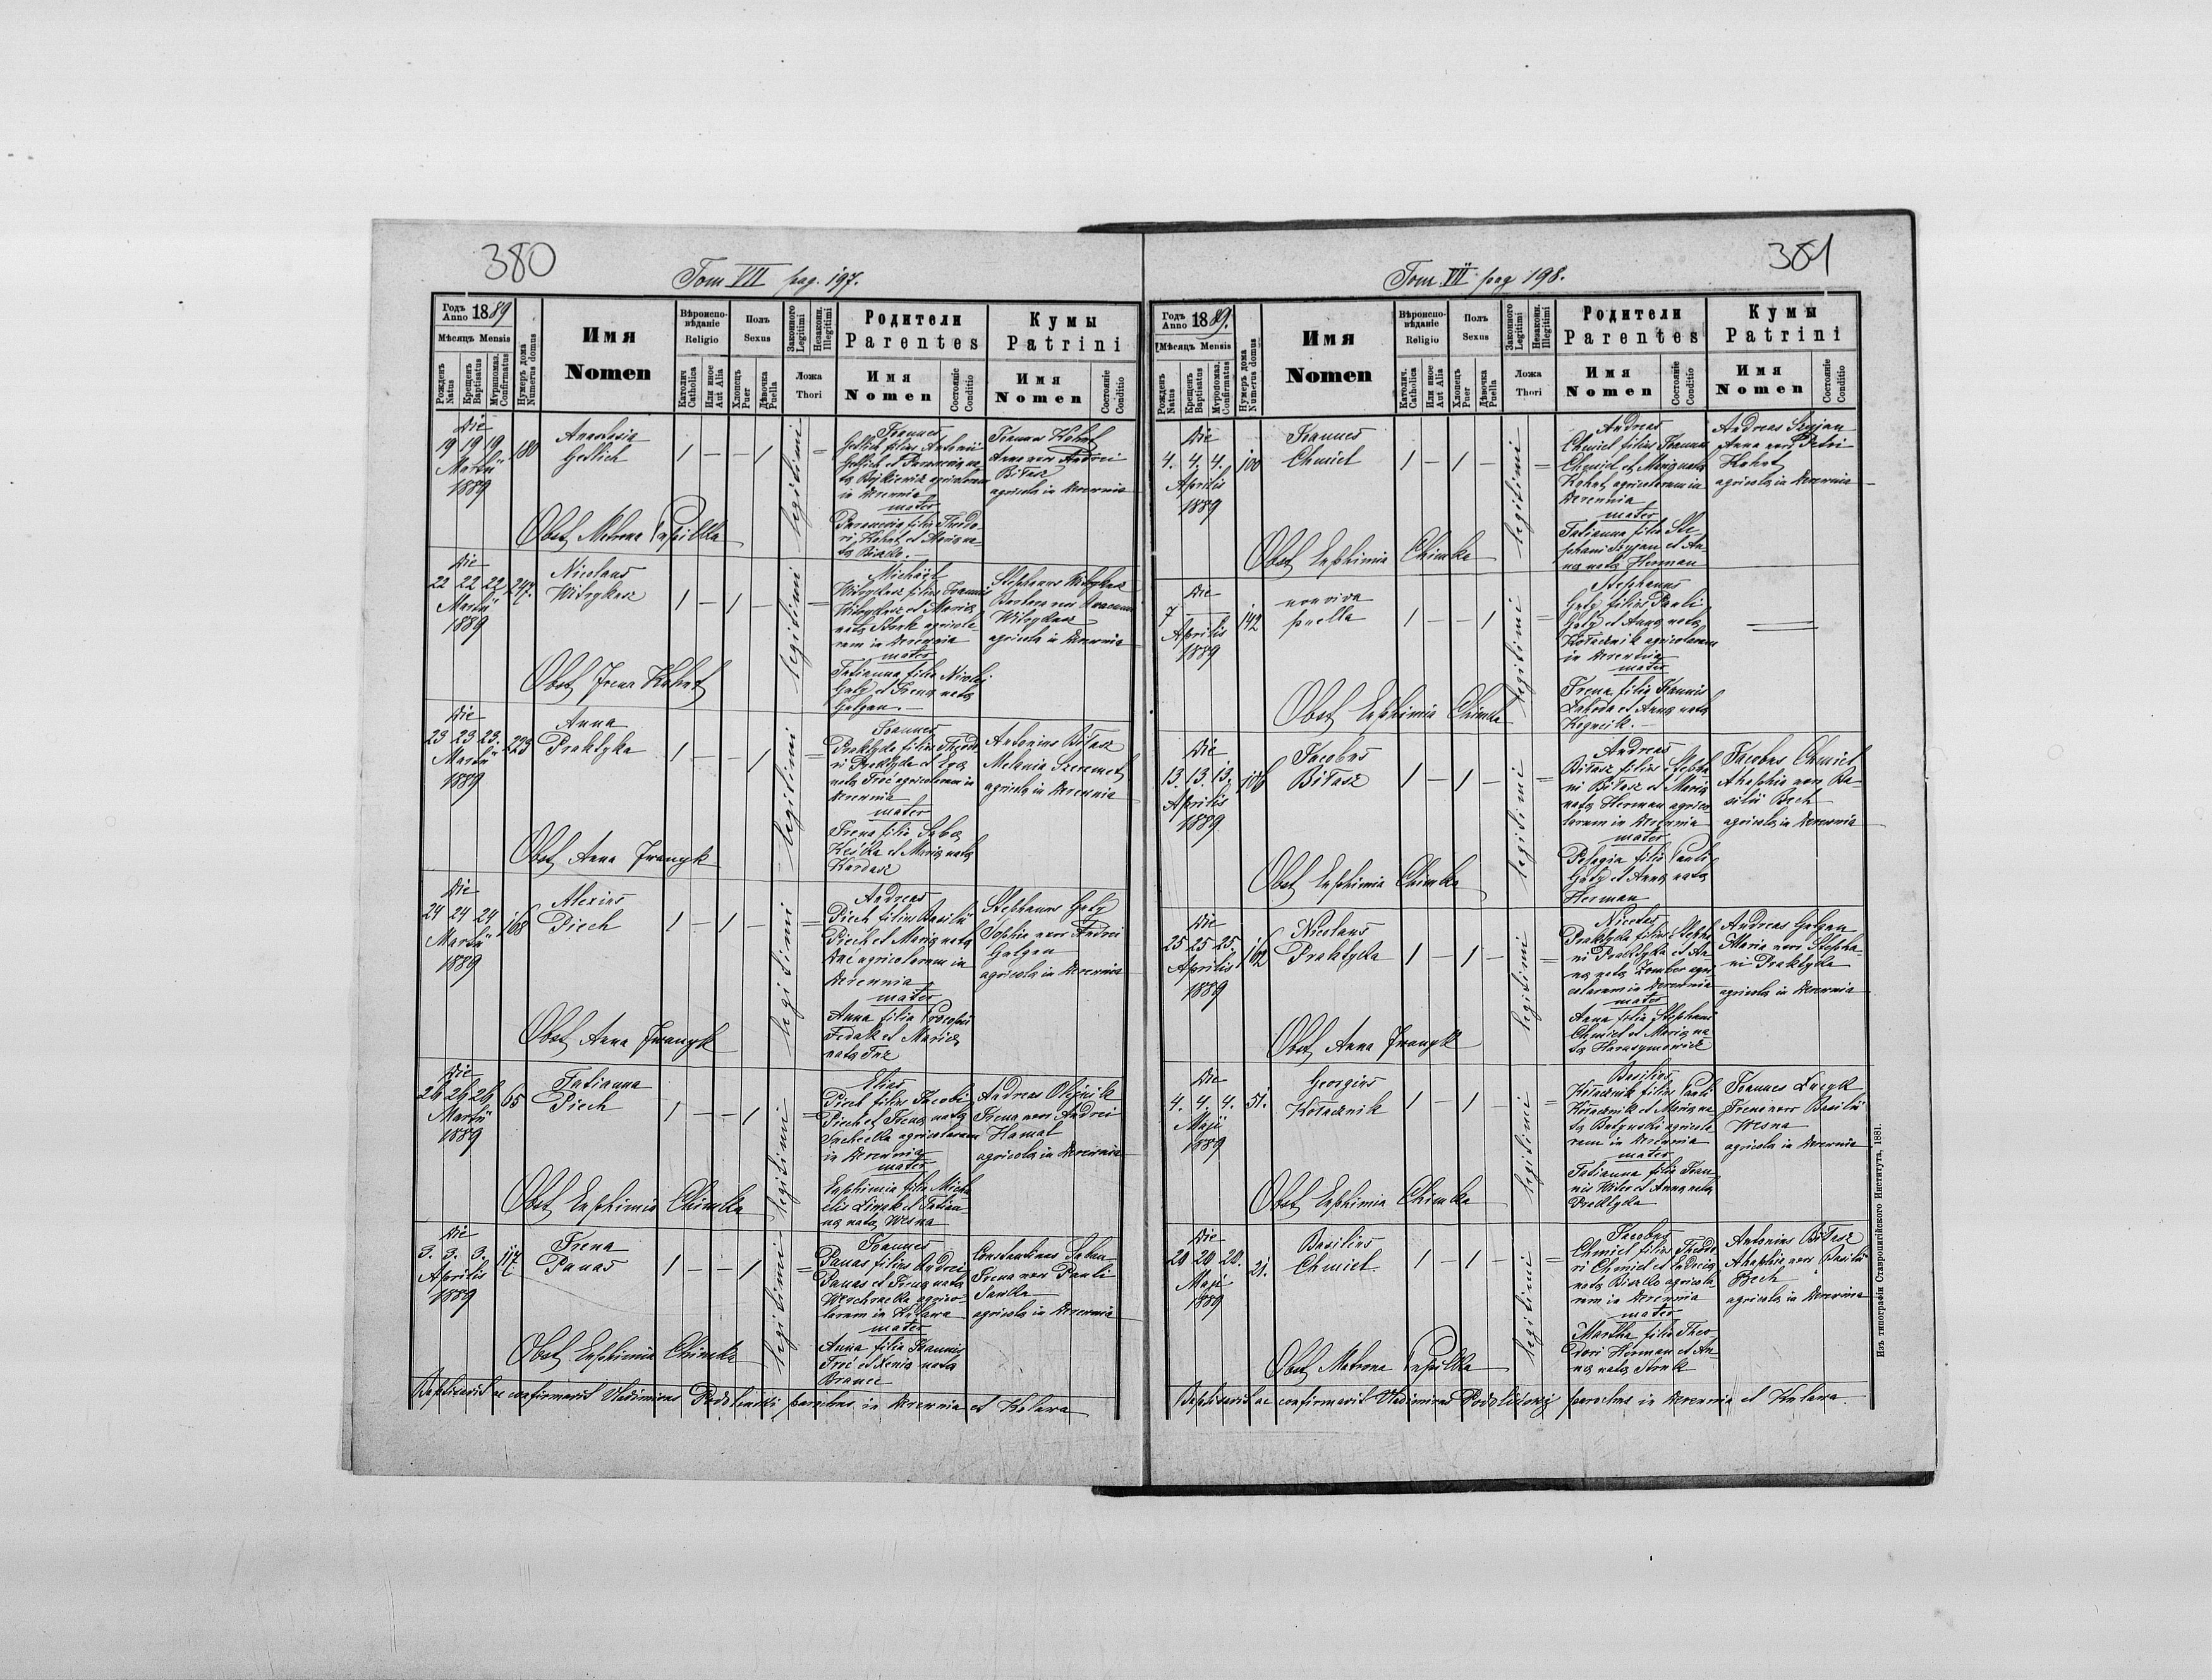 380
Tom VII pag. 197.
Годъ
Anno 1889
Мѣсяцъ Mensis
Рожденъ
Natus
Крещенъ
Baptisatus
Мѵропомаз.
Confirmatus
Нумеръ дома
Numerus domus
Имя
Nomen
Вѣроиспо-
вѣданіе
Religio
Католич.
Catholica
Или иное
Aut Alia
Полъ
Sexus
Хлопецъ
Puer
Дѣвочка
Puella
Законного
Legitimi
Незаконн.
Illegitimi
Ложа
Thori
Родители
Parentes
Имя
Nomen
Состояніе
Conditio
Кумы
Patrini
Имя
Nomen
Состояніе
Conditio
Die
19 19 19
Martii
1889
180
Anastasia
Gellich
1 – – 1
legitimi
Joannes
Gellich filius Antonii
in Derewnia
mater
Parascevia filia Theodo-
ri Kohut et Maria na-
ta
Joannes Kohut
Anna uxor Andrei
Biłasz
agricola in Derewnia
Obst. Matrona Pupilka
Die
22 22 22
Martii
1889
247.
Nicolaus
Witrykusz
1 – 1 –
legitimi
Michael
mater
Tatianna filia Nicolai
Galy et Irena nata
Galgan
agricola in Derewnia
Obst. Irena Kohut
Die
23 23 23.
Martii
1889
223
Anna
Praktyka
1 – – 1
legitimi
Joannes
Praktyka filius Theodo-
ri Praktyka et Eva
nata Troć agricolarum in
Derewnia
mater
Irena filia Saba
et Maria nata
Kardasz
Antonius Biłasz
Melania Szeremet
agricola in Derewnia
Obst. Anna Iwanyk
Die
24 24 24
Martii
1889
168
Alexius
Piech
1 – 1 –
legitimi
Andreas
Piech filius Basilii
Piech et Maria nata
agricolarum in
Derewnia
mater
Anna filia Procopii
Fedak et Maria
nata
Stephanus Galy
Sophia uxor Andrei
Galgan
agricola in Derewnia
Obst. Anna Iwanyk
Die
26 26 26
Martii
1889
65
Tatianna
Piech
1 – – 1
legitimi
Elias
Piech filius Jacobi
Piech et Irena nata
agricolarum
in Derewnia
mater
Euphimia filia Micha
elis et Tatian
na nata Wesna
Andreas Olijnik
Irena uxor Andrei
Hamal
agricola in Derewnia
Obst. Euphimia Chimka
Die
3. 3. 3.
Aprilis
1889
117
Irena
Panas
1 – – 1
legitimi
Joannes
Panas filius Andrei
Panas et Irena nata
agrico-
larum in Kulawa
mater
Anna filia Joannis
Troć et Xenia nata
Constantinus
Irena uxor Pauli
Sawka
agricola in Derewnia
Obst. Euphimia Chimka
Baptisavit ac confirmavit Vladimirus Podoliński parochus in Derewnia et Kulawa
381
Tom VII pag 198.
Годъ
Anno 1889.
Мѣсяцъ Mensis
Рожденъ
Natus
Крещенъ
Baptisatus
Мѵропомаз.
Confirmatus
Нумеръ дома
Numerus domus
Имя
Nomen
Вѣроиспо-
вѣданіе
Religio
Католич.
Catholica
Или иное
Aut Alia
Полъ
Sexus
Хлопецъ
Puer
Дѣвочка
Puella
Законного
Legitimi
Незаконн.
Illegitimi
Ложа
Thori
Родители
Parentes
Имя
Nomen
Состояніе
Conditio
Кумы
Patrini
Имя
Nomen
Состояніе
Conditio
Die
4. 4. 4.
Aprilis
1889
100
Joannes
Chmiel
1 – 1 –
legitimi
Andreas
Chmiel filius Joannis
Chmiel et Maria nata
Kohut agricolarum in
Derewnia
mater
Tatianna filia Ste
phani et An-
na nata Herman
Andreas
Anna uxor Petri
Kohut
agricola in Derewnia
Obst. Euphimia Chimka
Die
7
Aprilis
1889
142
non viva
puella
1 – – 1
legitimi
Stephanus
Galy filius Pauli
Galy et Anna nata
Kołacznik agricolarum
in Derewnia
mater
Irena filia Joannis
et Anna nata
Obst. Euphimia Chimka
Die
13. 13. 13.
Aprilis
1889
106
Jacobus
Biłasz
1 – 1 –
legitimi
Andreas
Biłasz filius Stepha
ni Biłasz et Maria
nata Herman agrico
larum in Derewnia
mater
Pelagia filia Pauli
Galy et Anna nata
Herman
Jacobus Chmiel
Ahaphia uxor Ba-
silii Bech
agricola in Derewnia
Obst. Euphimia Chimka
Die
25 25 25.
Aprilis
1889
162
Nicolaus
Praktyka
1 – 1 –
legitimi
Nicetas
Praktyka filius Stepha
ni Praktyka et An-
na nata agri
colarum in Derewnia
mater
Anna filia Stephani
Chmiel et Maria na-
ta Harasymowicz
Andreas Galgan
Maria uxor Stepha-
ni Praktyka
agricola in Derewnia
Obst. Anna Iwanyk
Die
4. 4. 4.
Maji
1889
51.
Georgius
Kołacznik
1 – 1 –
legitimi
Basilius
Kołacznik filius Pauli
Kołacznik et Maria na
ta agricola
rum in Derewnia
mater
Tatianna filia Joan
nis et Anna nata
Praktyka
Joannes
Irena uxor Basilii
Wesna
agricola in Derewnia
Obst. Euphimia Chimka
Die
20 20 20.
Maji
1889
21.
Basilius
Chmiel
1 – 1 –
legitimi
Jacobus
Chmiel filius Theodo
ri Chmiel et
nata agricola-
rum in Derewnia
mater
Martha filia Theo-
dori Herman et An-
na nata
Antonius Biłasz
Ahaphia uxor Basilii
Bech
agricola in Derewnia
Obst. Matrona Pupilka
Baptisavit ac confirmavit Vladimirus Podoliński parochus in Derewnia et Kulawa.
Изъ типографіи Ставропигійского Института, 1881.